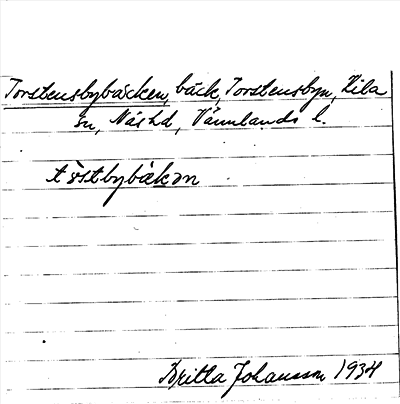 Torstensbybäcken, bäck, Torstensbyn, Kila
sn, Näs hd, Värmlands l.
töstbybäkən
Britta Johansson 1934